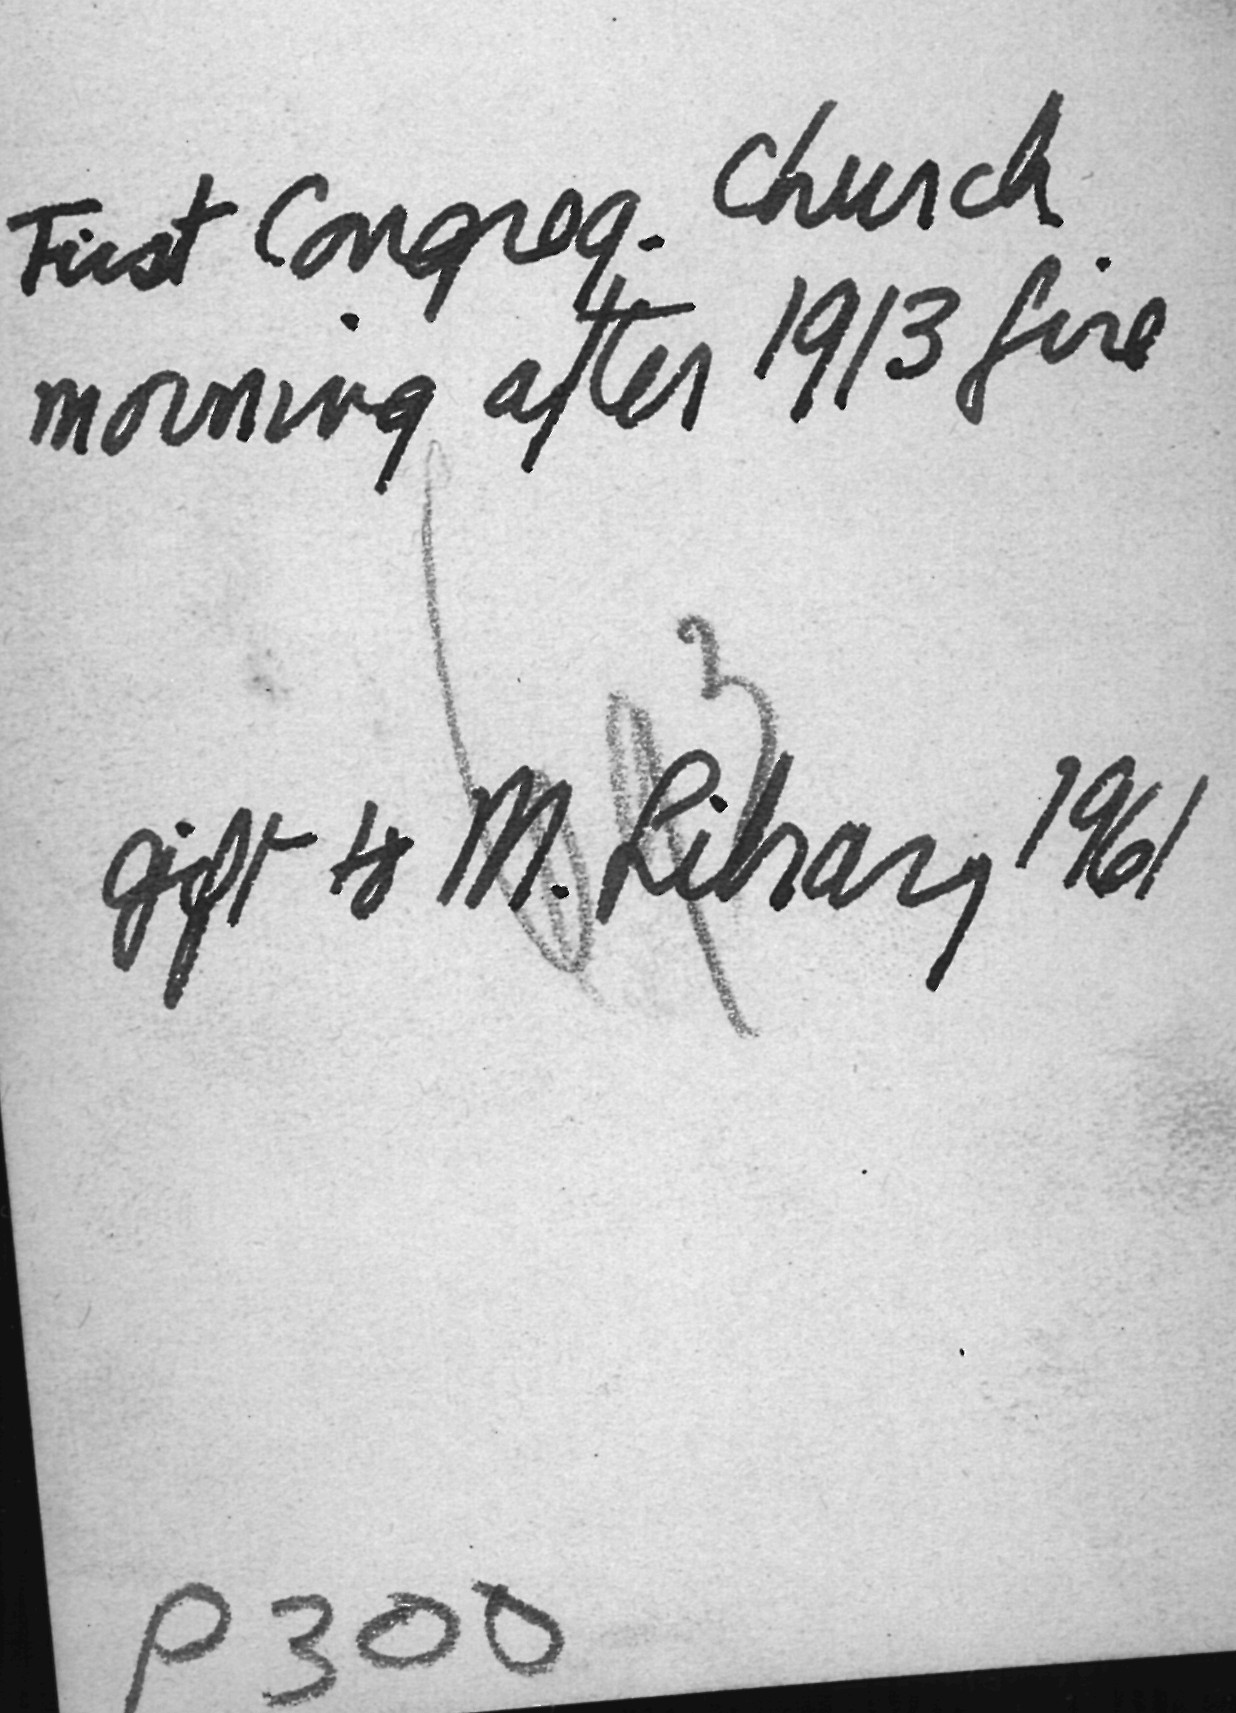 First Congreg. Church
morning after 1913 fire
gift to M. Library 1961
P300